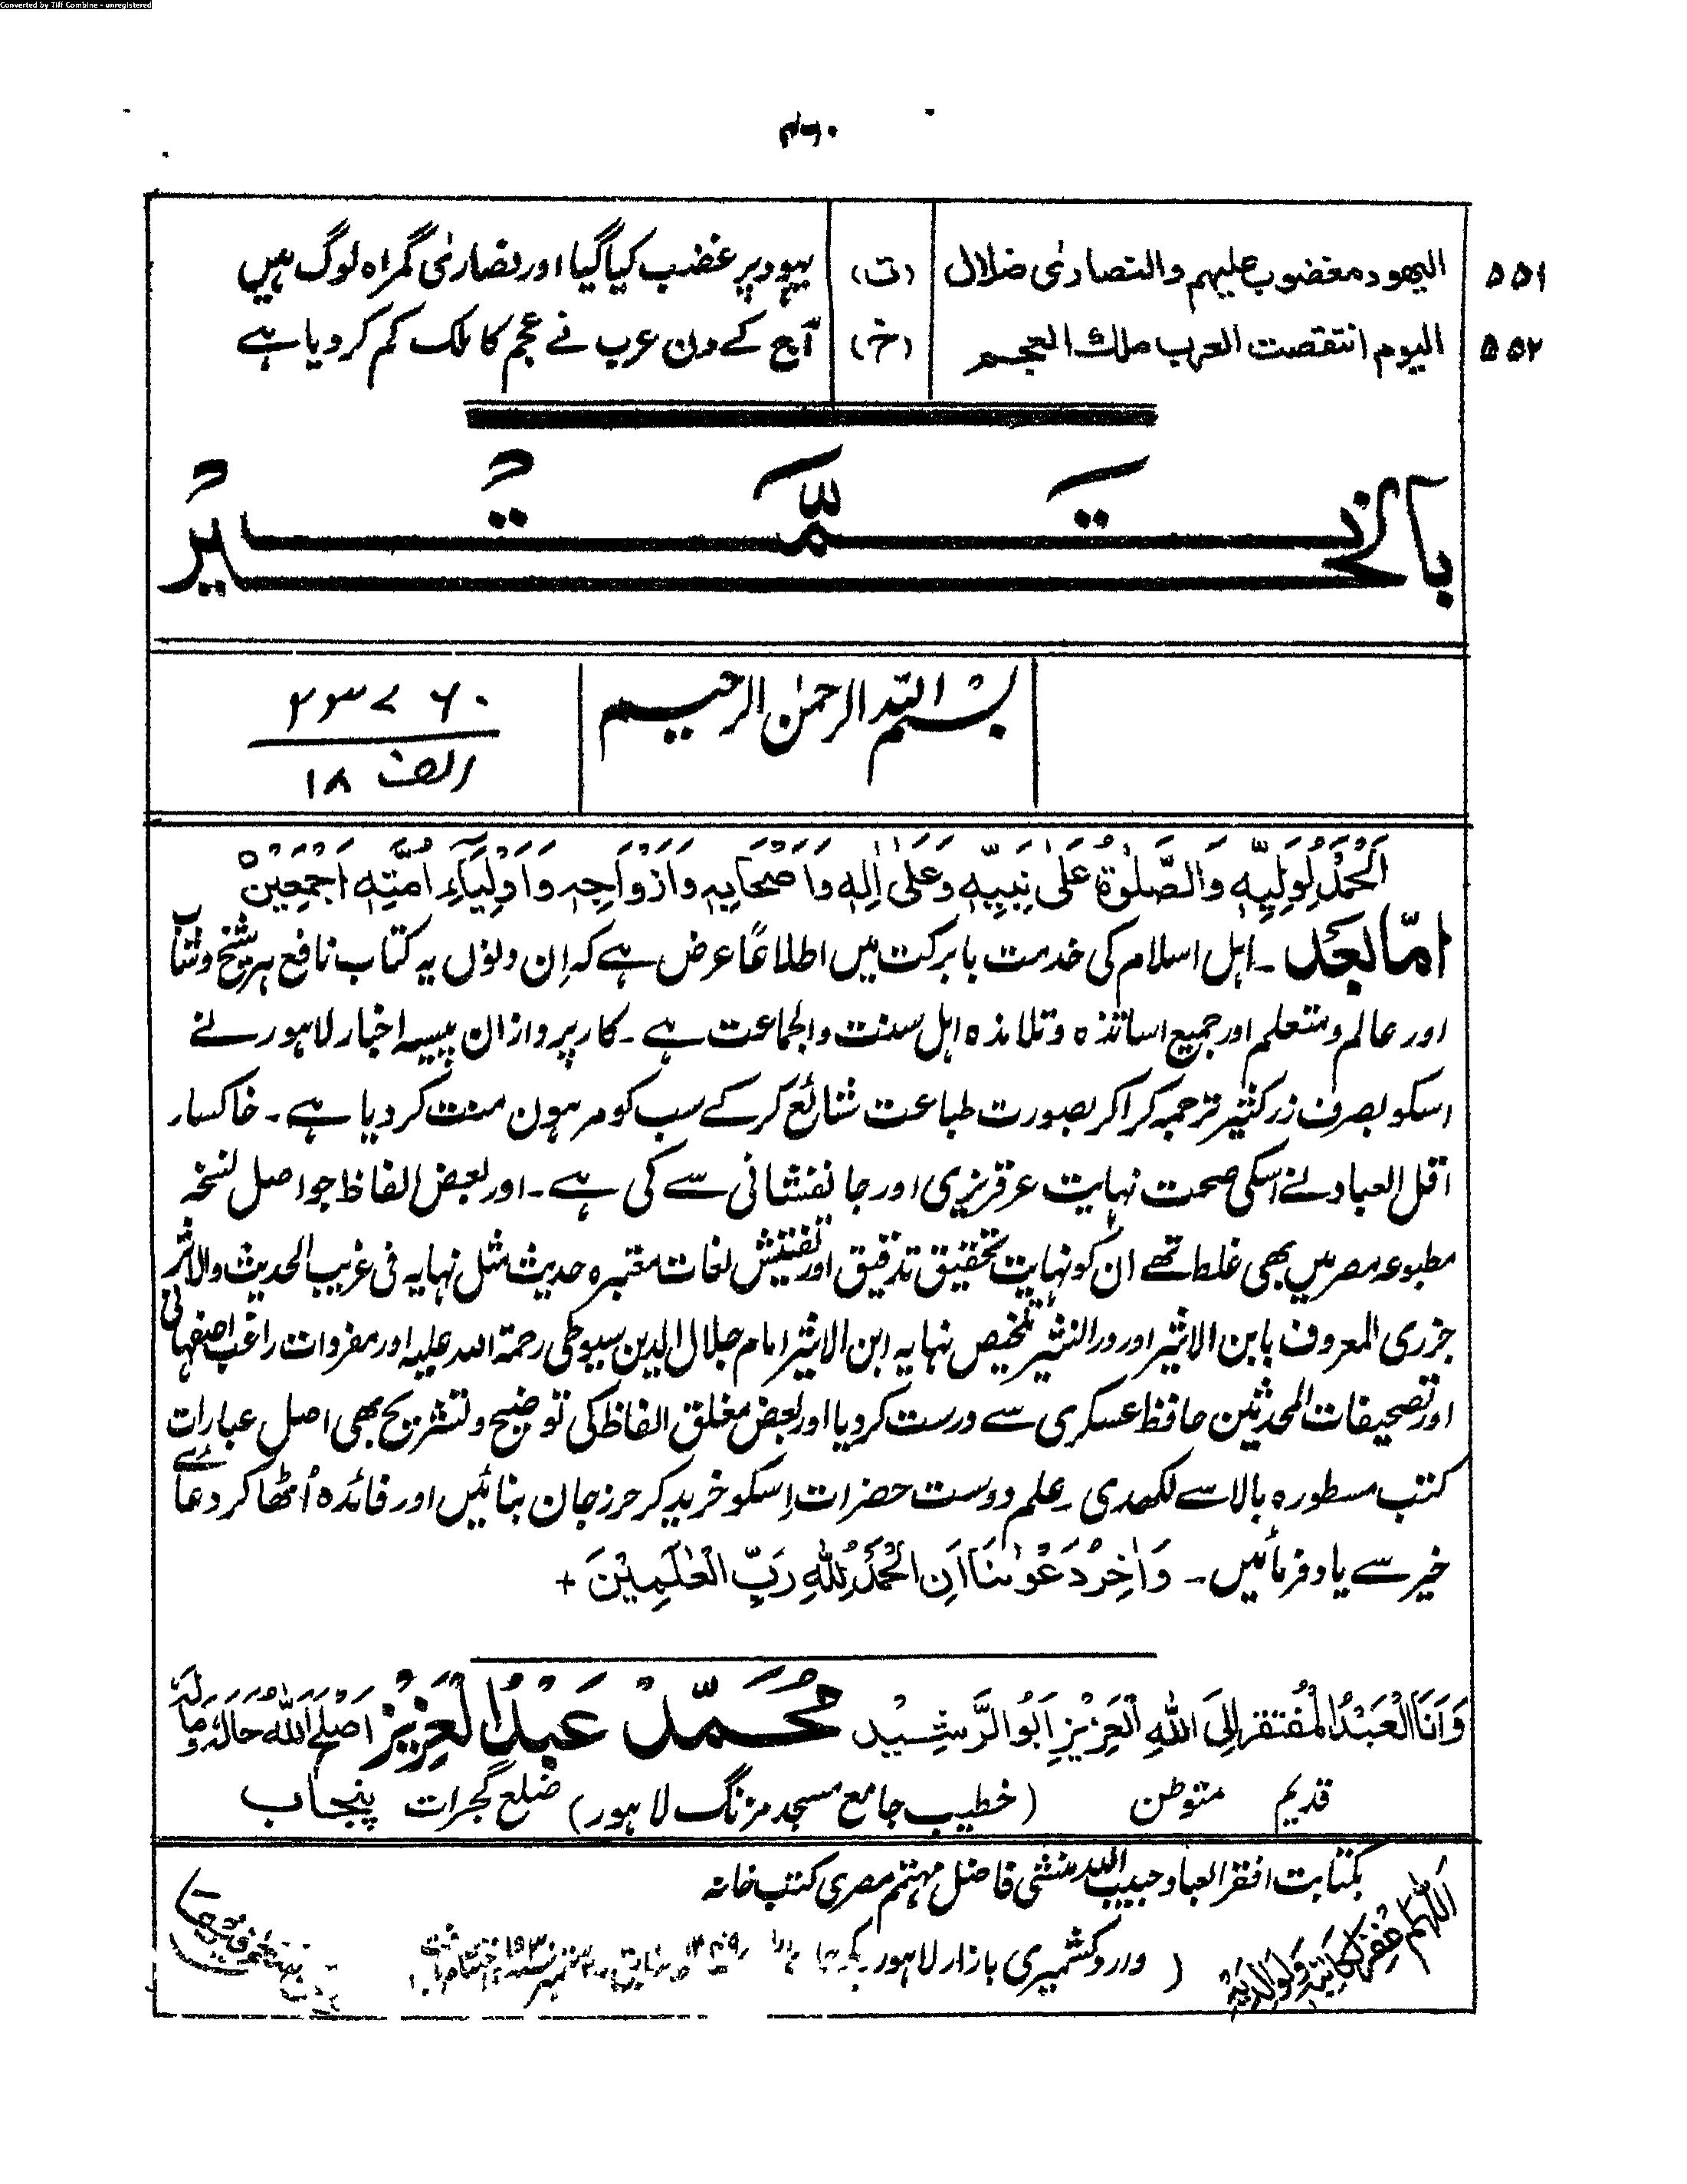 Converted by Tiff Combine - unregistered
۴۶۰
۵۵۱ الیھود مغضوب علیہم والنصارٰی ضلال (ت) یہود پر غضب کیا گیا اور نصارٰی گمراہ لوگ ہیں
۵۵۲ الیوم انتقصت العرب ملک العجم (خ) آج کے دن عرب نے عجم کا ملک کم کر دیا ہے
تَمَّتْ بالخیر
بسم اللہ الرحمٰن الرحیم
۲۳۷۶۰
الف ۱۸
اَلْحَمْدُ لِوَلِیِّہٖ وَالصَّلٰوۃُ عَلٰی نَبِیِّہٖ وَعَلٰی اٰلِہٖ وَاَصْحَابِہٖ وَاَزْوَاجِہٖ وَاَوْلِیَآءِ اُمَّتِہٖ اَجْمَعِیْنَ
امّا بعد ۔ اہل اسلام کی خدمت بابرکت میں اطلاعًا عرض ہے کہ اِن دنوں یہ کتاب نافع ہر شیخ و شاب
اور عالم و متعلم اور جمیع اساتذہ و تلامذہ اہل سنت والجماعت ہے ۔ کار پردازان پیسہ اخبار لاہور نے
اسکو بصرف زر کثیر ترجمہ کرا کر بصورت طباعت شائع کر کے سب کو مرہون منت کر دیا ہے ۔ خاکسار
اقل العباد نے اسکی صحت نہایت عرقریزی اور جانفشانی سے کی ہے ۔ اور بعض الفاظ جو اصل نسخہ
مطبوعہ مصر میں بھی غلط تھے اُن کو نہایت تحقیق تدقیق اور تفتیش لغات معتبرہ حدیث مثل نہایہ فی غریب الحدیث والاثر
جزری المعروف بابن الاثیر اور در النثیر تلخیص نہایہ ابن الاثیر امام جلال الدین سیوطی رحمۃ اللہ علیہ اور مفردات راغب اصفہانی
اور تصحیفات المحدثین حافظ عسکری سے درست کر دیا اور بعض مغلق الفاظ کی توضیح و تشریح بھی اصل عبارات
کتب مسطورہ بالا سے لکھدی ۔ علم دوست حضرات اِسکو خرید کر حرز جان بنائیں اور فائدہ اُٹھا کر دعائے
خیر سے یاد فرمائیں ۔ وَاٰخِرُ دَعْوٰنَا اَنِ الْحَمْدُ لِلّٰہِ رَبِّ الْعٰلَمِیْنَ +
وَاَنَا الْعَبْدُ الْمُفْتَقِرُ اِلَی اللّٰہِ الْعَزِیْزِ اَبُو الرَّشِیْد مُحَمَّدْ عَبْدُ الْعَزِیْز اَصْلَحَ اللّٰہُ حَالَہٗ وَمَاٰلَہٗ
قدیم متوطن (خطیب جامع مسجد مزنگ لاہور) ضلع گجرات پنجاب
بکتابت افقر العباد حبیب اللہ منشی فاضل مہتمم مصری کتب خانہ
اَللّٰہُمَّ اغْفِرْ لِکَاتِبِہٖ وَلِوَالِدَیْہِ
( وارد کشمیری بازار لاہور